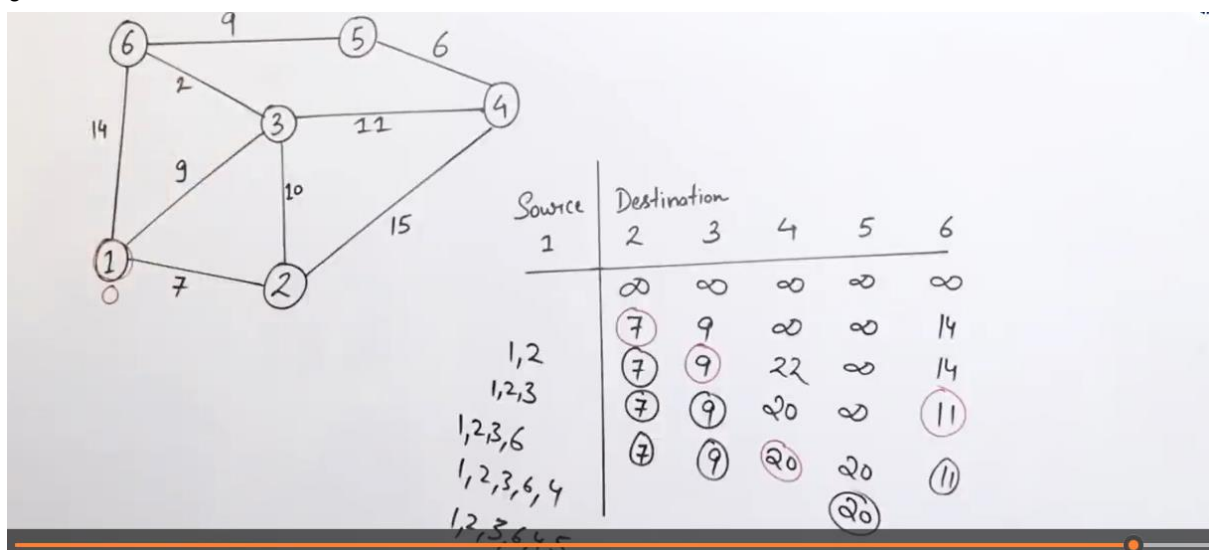 9
6
5
6
2
4
14
3
11
9
10
15
1
7
2
0
Source Destination
1 2 3 4 5 6
∞ ∞ ∞ ∞ ∞
7 9 ∞ ∞ 14
1,2 7 9 22 ∞ 14
1,2,3 7 9 20 ∞ 11
1,2,3,6 7 9 20 20 11
1,2,3,6,4 20
1,2,3,6,4,5